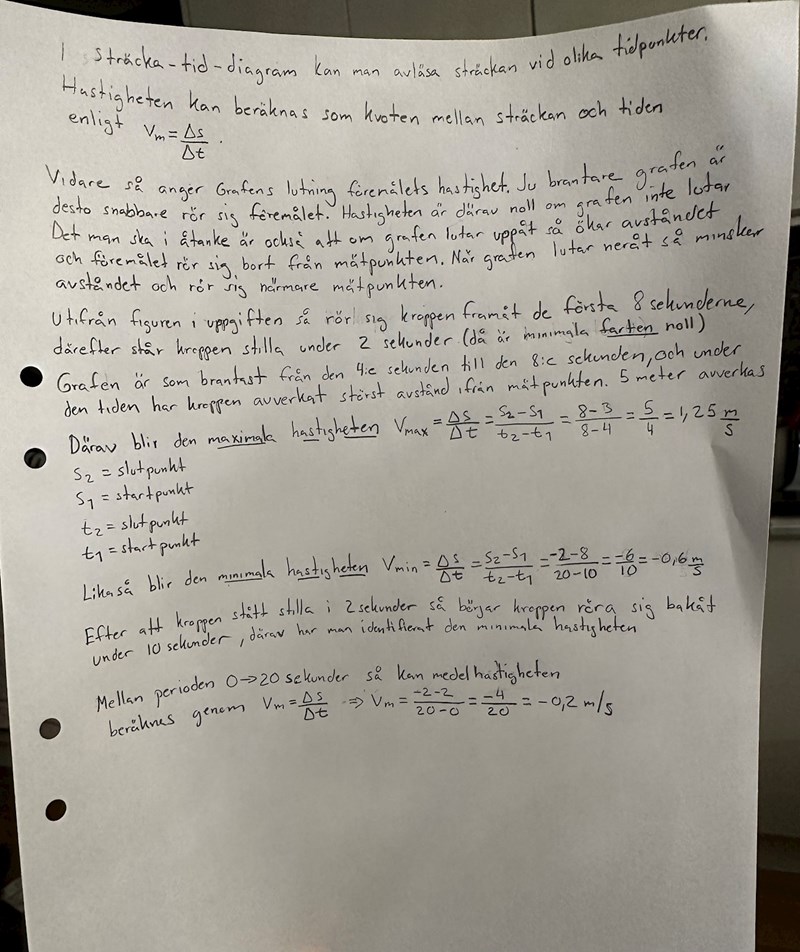 I sträcka-tid-diagram kan man avläsa sträckan vid olika tidpunkter.
Hastigheten kan beräknas som kvoten mellan sträckan och tiden
enligt Vm = Δs/Δt.
Vidare så anger Grafens lutning föremålets hastighet. Ju brantare grafen är
desto snabbare rör sig föremålet. Hastigheten är därav noll om grafen inte lutar
Det man ska i åtanke är också att om grafen lutar uppåt så ökar avståndet
och föremålet rör sig bort från mätpunkten. När grafen lutar neråt så minsker
avståndet och rör sig närmare mätpunkten.
Utifrån figuren i uppgiften så rör sig kroppen framåt de första 8 sekunderne,
därefter står kroppen stilla under 2 sekunder (då är minimala farten noll)
Grafen är som brantast från den 4:e sekunden till den 8:e sekunden, och under
den tiden har kroppen avverkat störst avstånd ifrån mätpunkten. 5 meter avverkas
Därav blir den maximala hastigheten Vmax = Δs/Δt = s₂-s₁/t₂-t₁ = 8-3/8-4 = 5/4 = 1,25 m/s
s₂ = slutpunkt
s₁ = startpunkt
t₂ = slutpunkt
t₁ = startpunkt
Likaså blir den minimala hastigheten Vmin = Δs/Δt = s₂-s₁/t₂-t₁ = -2-8/20-10 = -6/10 = -0,6 m/s
Efter att kroppen stått stilla i 2 sekunder så börjar kroppen röra sig bakåt
under 10 sekunder, därav har man identifierat den minimala hastigheten
Mellan perioden 0→20 sekunder så kan medelhastigheten
beräknas genom Vm = Δs/Δt ⇒ Vm = -2-2/20-0 = -4/20 = -0,2 m/s